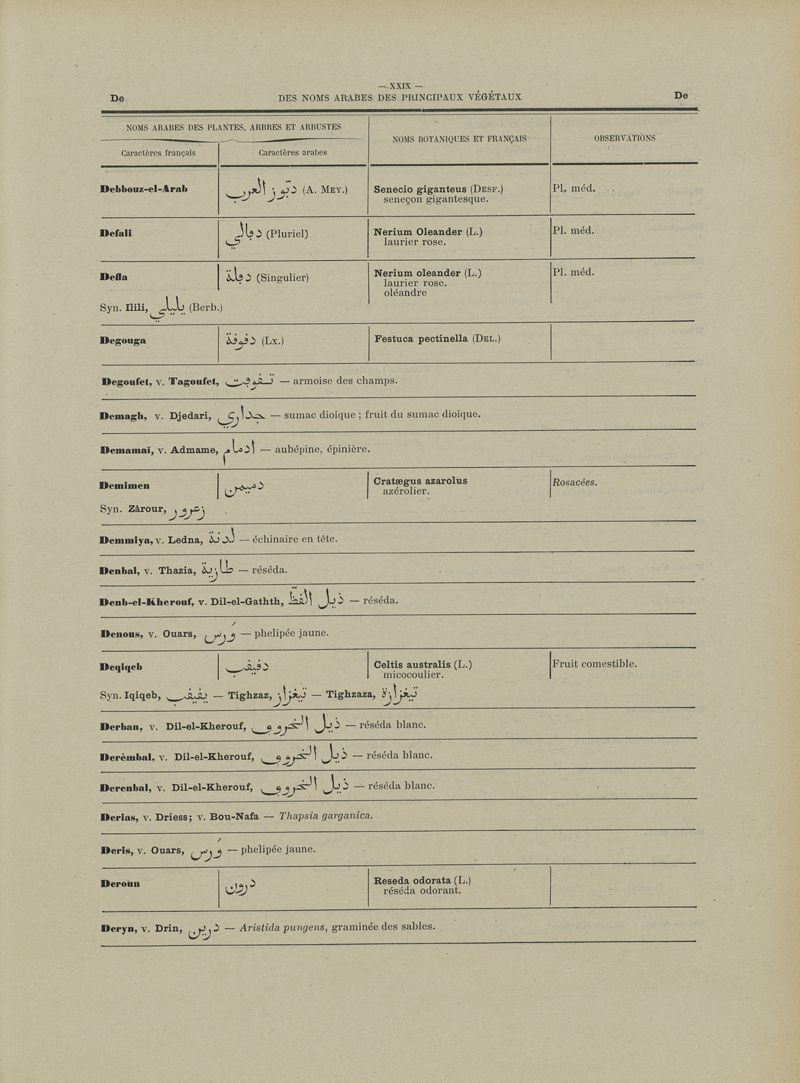 — XXIX —
De DES NOMS ARABES DES PRINCIPAUX VÉGÉTAUX De
NOMS ARABES DES PLANTES, ARBRES ET ARBUSTES
NOMS BOTANIQUES ET FRANÇAIS
OBSERVATIONS
Caractères français Caractères arabes
Debbouz-el-Arab دبّوز العرب (A. MEY.) Senecio giganteus (DESF.) Pl. méd.
seneçon gigantesque.
Defali دفالي (Pluriel) Nerium Oleander (L.) Pl. méd.
laurier rose.
Defla دفلة (Singulier) Nerium oleander (L.) Pl. méd.
laurier rose.
oléandre
Syn. Ilili, يليلي (Berb.)
Degouga (LX.) Festuca pectinella (DEL.)
Degoufet, v. Tagoufet, — armoise des champs.
Demagh, v. Djedari, جداري — sumac dioïque ; fruit du sumac dioïque.
Demamaï, v. Admame, ادمام — aubépine, épinière.
Demimen دميمن Cratægus azarolus Rosacées.
azérolier.
Syn. Zârour, زعرور
Demmiya, v. Ledna, لدنة — échinaire en tête.
Denbal, v. Thazia, — réséda.
Denb-el-Kherouf, v. Dil-el-Gathth, — réséda.
Denous, v. Ouars, وَرس — phelipée jaune.
Deqiqeb Celtis australis (L.) Fruit comestible.
micocoulier.
Syn. Iqiqeb, — Tighzaz, تيغزاز — Tighzaza,
Derban, v. Dil-el-Kherouf, ذيل الخروف — réséda blanc.
Derêmbal, v. Dil-el-Kherouf, ذيل الخروف — réséda blanc.
Derenbal, v. Dil-el-Kherouf, ذيل الخروف — réséda blanc.
Derias, v. Driess; v. Bou-Nafa — Thapsia garganica.
Deris, v. Ouars, وَرس — phelipée jaune.
Deroun درون Reseda odorata (L.)
réséda odorant.
Deryn, v. Drin, درين — Aristida pungens, graminée des sables.